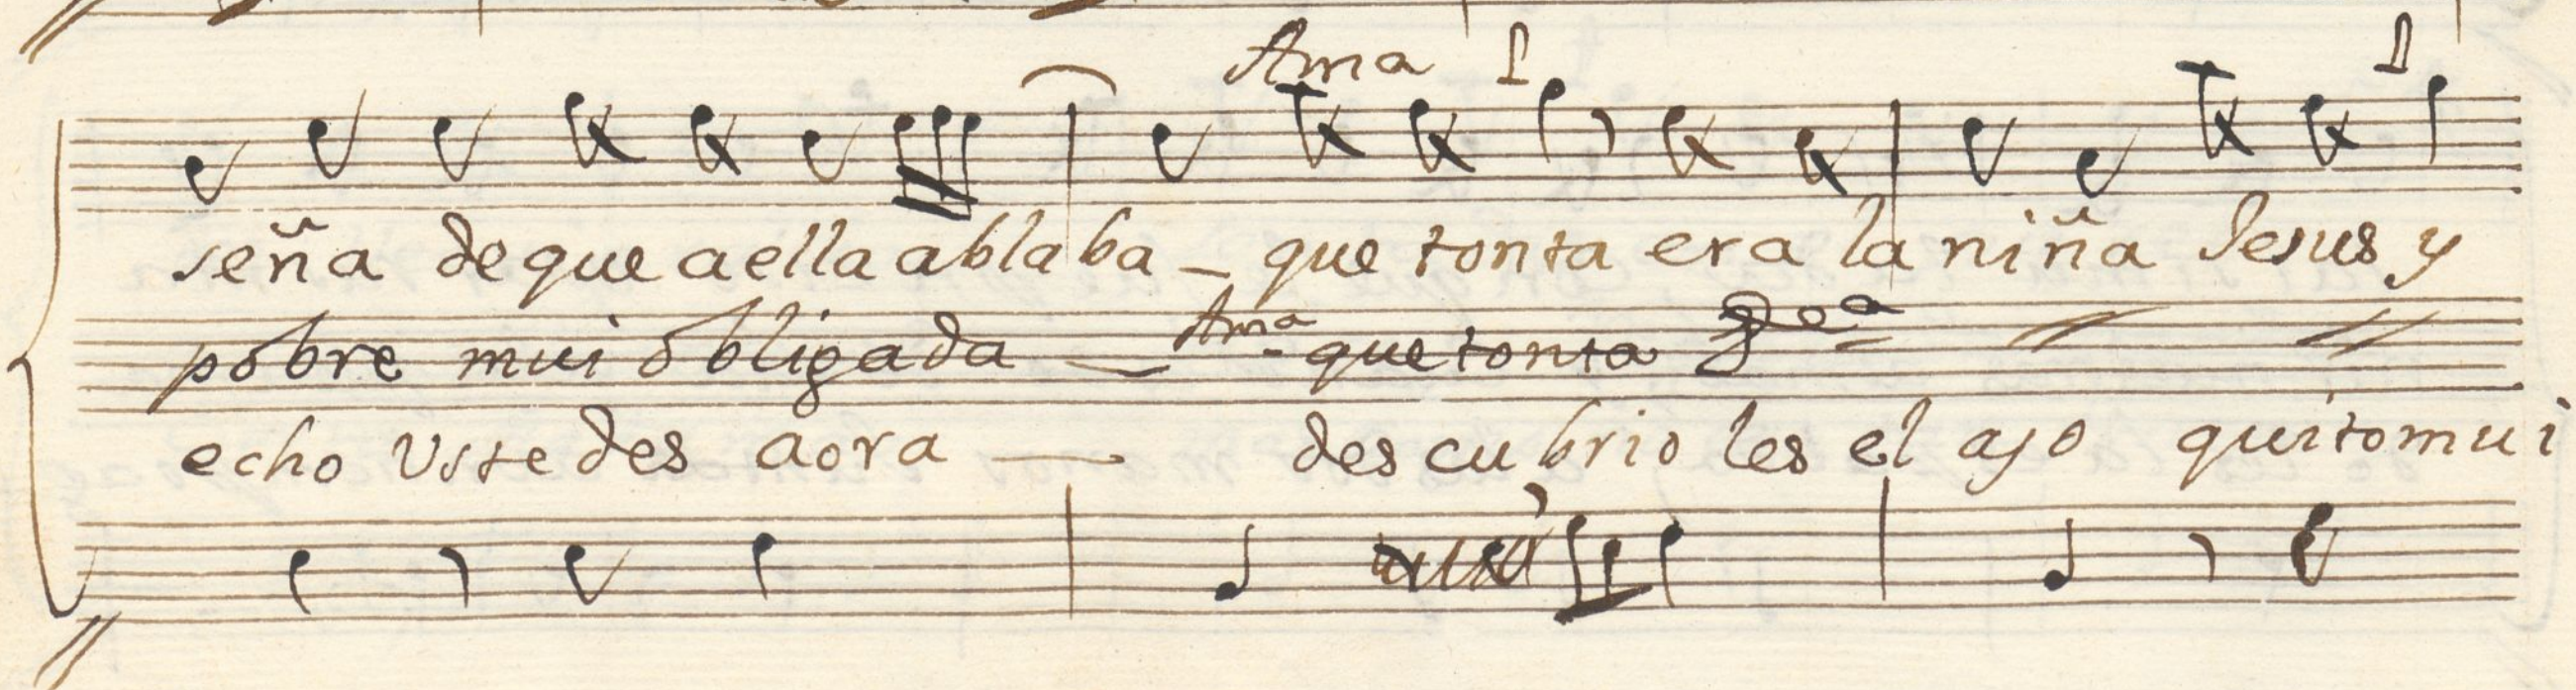 Ama
seña de que a ella ablaba - que tonta era la niña Jesus y
pobre mui obligada - Ama - que tonta
echo Ustedes aora - descubrioles el ajo quito mui